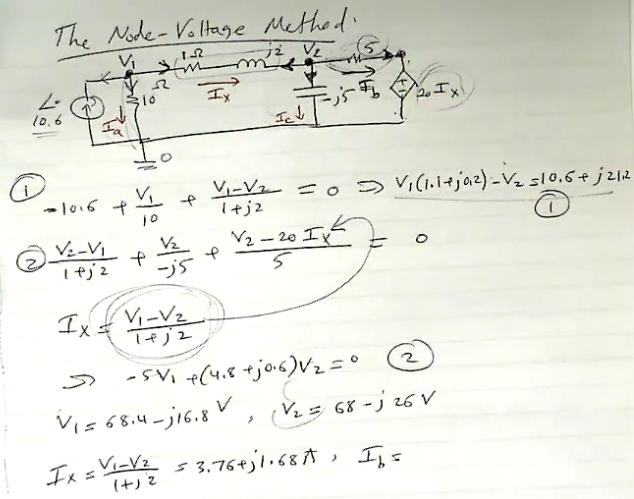 The Node-Voltage Method.
V₁ 1Ω j2 V₂ 5
Ω
10.6 Ia 10 Ix Ic -j5 Ib 20 Ix
0
① -10.6 + V₁/10 + (V₁-V₂)/(1+j2) = 0 ⇒ V₁(1.1+j0.2) - V₂ = 10.6 + j21.2
①
② (V₂-V₁)/(1+j2) + V₂/-j5 + (V₂-20 Ix)/5 = 0
Ix = (V₁-V₂)/(1+j2)
⇒ -5V₁ + (4.8+j0.6)V₂ = 0 ②
V₁ = 68.4-j16.8 V , V₂ = 68-j26 V
Ix = (V₁-V₂)/(1+j2) = 3.76+j1.68 A , Ib =